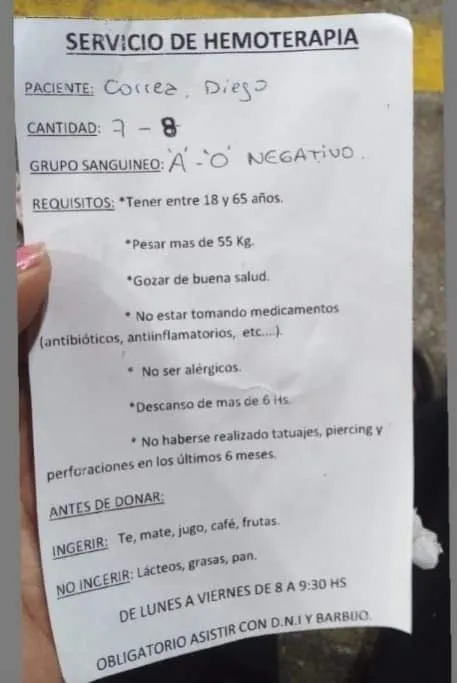 SERVICIO DE HEMOTERAPIA
PACIENTE: Correa, Diego
CANTIDAD: 7 - 8
GRUPO SANGUINEO: 'A' - 'O' NEGATIVO.
REQUISITOS: *Tener entre 18 y 65 años.
*Pesar mas de 55 Kg.
*Gozar de buena salud.
* No estar tomando medicamentos
(antibióticos, antiinflamatorios, etc....).
* No ser alérgicos.
*Descanso de mas de 6 Hs.
* No haberse realizado tatuajes, piercing y
perforaciones en los últimos 6 meses.
ANTES DE DONAR:
INGERIR: Te, mate, jugo, café, frutas.
NO INGERIR: Lácteos, grasas, pan.
DE LUNES A VIERNES DE 8 A 9:30 HS
OBLIGATORIO ASISTIR CON D.N.I Y BARBIJO.